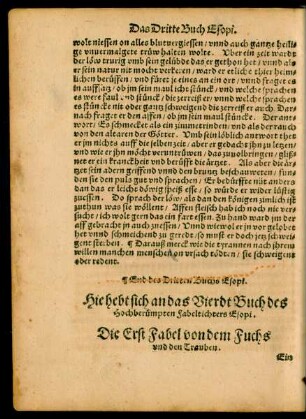 Das Dritte Buch Esopi.
wolt niessen on alles blutvergiessen / vnnd auch gantze heili-
ge vnuermaligte trüw halten wolte. Uber ein zeit ward
der löw trurig vmb sein gelübde das er gethon het / vnnd als
er sein natur nit mocht verkeren / ward er etliche thier heim-
lichen berüffen / vnd fürt ye eines an ein ort / vnnd fraget es
in auffsatz / ob jm sein maul icht stüncke / vnd welche sprachen
es were faul vnd stünck / die zerreiß er / vnd welche sprachen
es stüncke nit oder gantz schweigend die zerreiß er auch. Dar-
nach fraget er den affen / ob jm sein maul stüncke. Der ant-
wort / Es schmecket als ein zimmetrinden / vnd als der rauch
von den altaren der Götter. Vmb sein löblich antwort thet
er jm nichts auff die selben zeit / aber er gedacht jm zu letzen /
vnd wie er jhn möcht verunträwen / das zuuolbringen / gliß-
net er ein kranckheit vnd berüfft die ärtzet. Als aber die ärtzet
sein adern griffen vnnd den bruntz beschauweten / fun-
den sie den puls gut vnd sprachen / Er bedürffte nüt anders
dan das er leichte döwig speiß esse / so würde er wider lüstig
zuessen. Do sprach der löw / als dan den Königen zimlich ist
zuthun was sie wöllent. Affen fleisch hab ich noch nie ver-
sucht / ich wolt gern das ein fart essen. Zu hand ward jm der
aff gebracht jn auch zuessen / Vnnd wiewol er jn vor gelobet
het vnnd schmeichend zu geredt / so must er doch zu letz schwei-
gent sterben. ¶ Darauß merck wie die tyrannen nach jhrem
willen manchen menschen on vrsach tödten / sie schweigent
oder redent.
¶ End des Dritten Buchs Esopi.
Hie hebt sich an das Vierdt Buch des
Hochberümpten Fabeltichters Esopi.
Die Erst Fabel von dem Fuchs
vnd den Trauben.
Ein